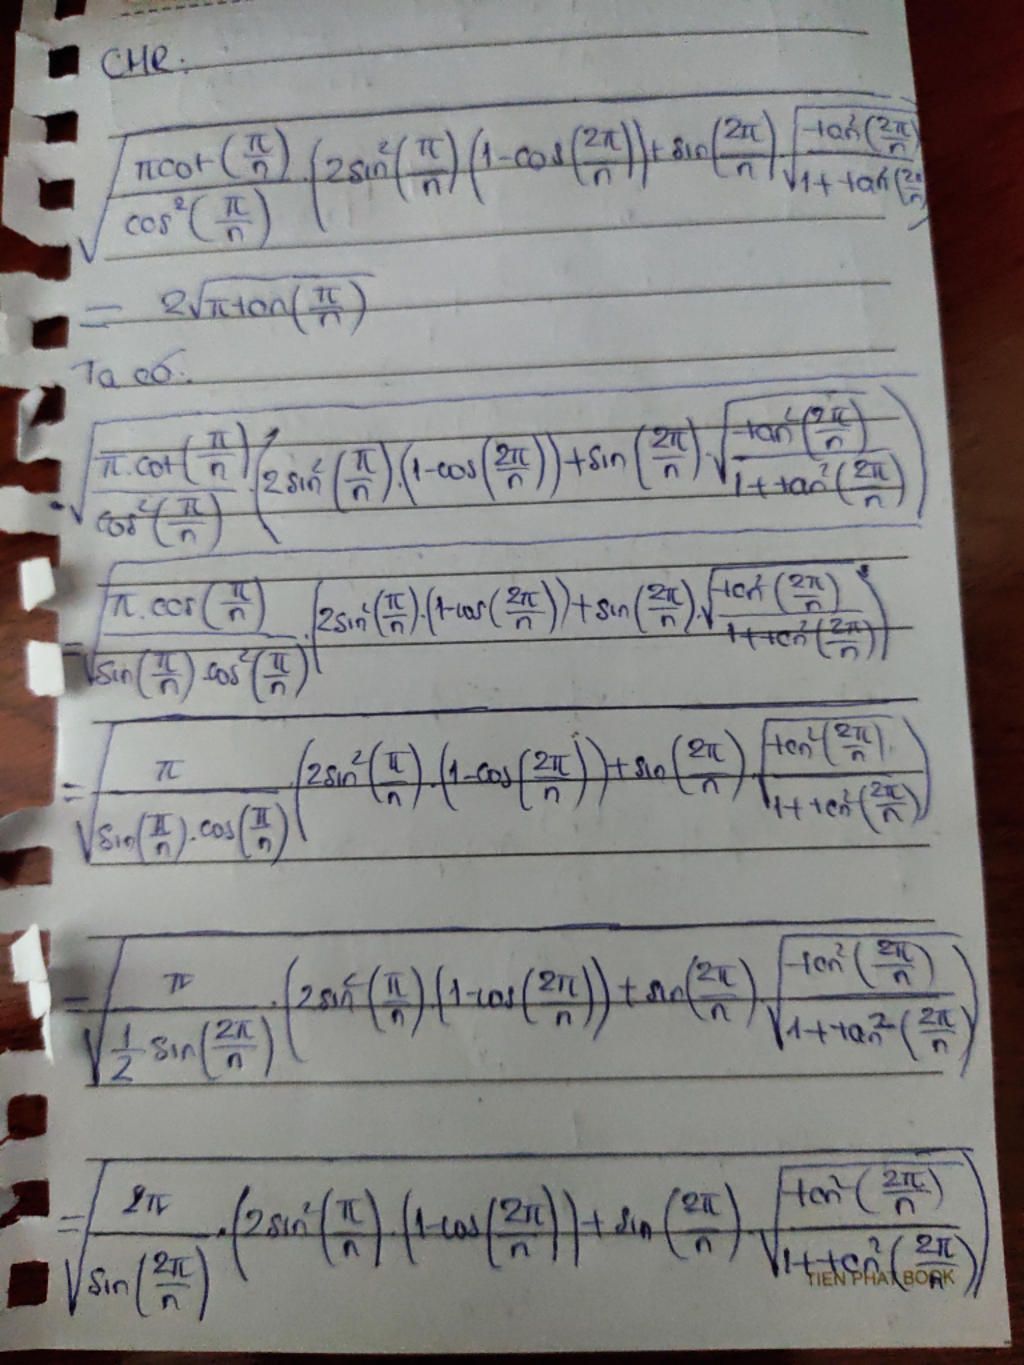 CMR:
√(πcot(π/n)/cos²(π/n) · (2sin²(π/n)(1-cos(2π/n))+sin(2π/n)·√(tan²(2π/n)/1+tan²(2π/n))))
= 2√(πtan(π/n))
Ta có:
√(π.cot(π/n)/cos²(π/n) · (2sin²(π/n).(1-cos(2π/n))+sin(2π/n)·√(tan²(2π/n)/1+tan²(2π/n))))
= √(π.cos(π/n)/sin(π/n).cos²(π/n) · (2sin²(π/n).(1-cos(2π/n))+sin(2π/n).√(tan²(2π/n)/1+tan²(2π/n))))
= √(π/sin(π/n).cos(π/n) · (2sin²(π/n).(1-cos(2π/n))+sin(2π/n)·√(tan²(2π/n)/1+tan²(2π/n))))
= √(π/½sin(2π/n) · (2sin²(π/n).(1-cos(2π/n))+sin(2π/n)·√(tan²(2π/n)/1+tan²(2π/n))))
= √(2π/sin(2π/n) · (2sin²(π/n).(1-cos(2π/n))+sin(2π/n)·√(tan²(2π/n)/1+tan²(2π/n))))
TIEN PHAT BOOK